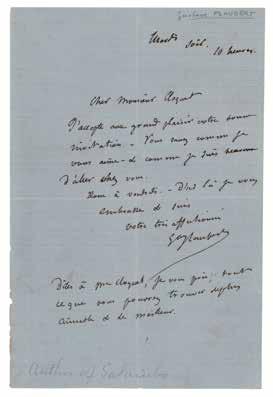 Gustave FLAUBERT
Mardi soir. 10 heures.
Cher Monsieur Clogat
J'accepte avec grand plaisir votre bonne
invitation - Vous savez comme je
vous aime - & comme je suis heureux
d'aller chez vous.
Donc à vendredi - D'ici là je vous
embrasse & suis
votre très affectionné
G Flaubert
Dites à Mme Clogat, je vous prie, tout
ce que vous pouvez trouver de plus
aimable & de meilleur.
Author of Salambo